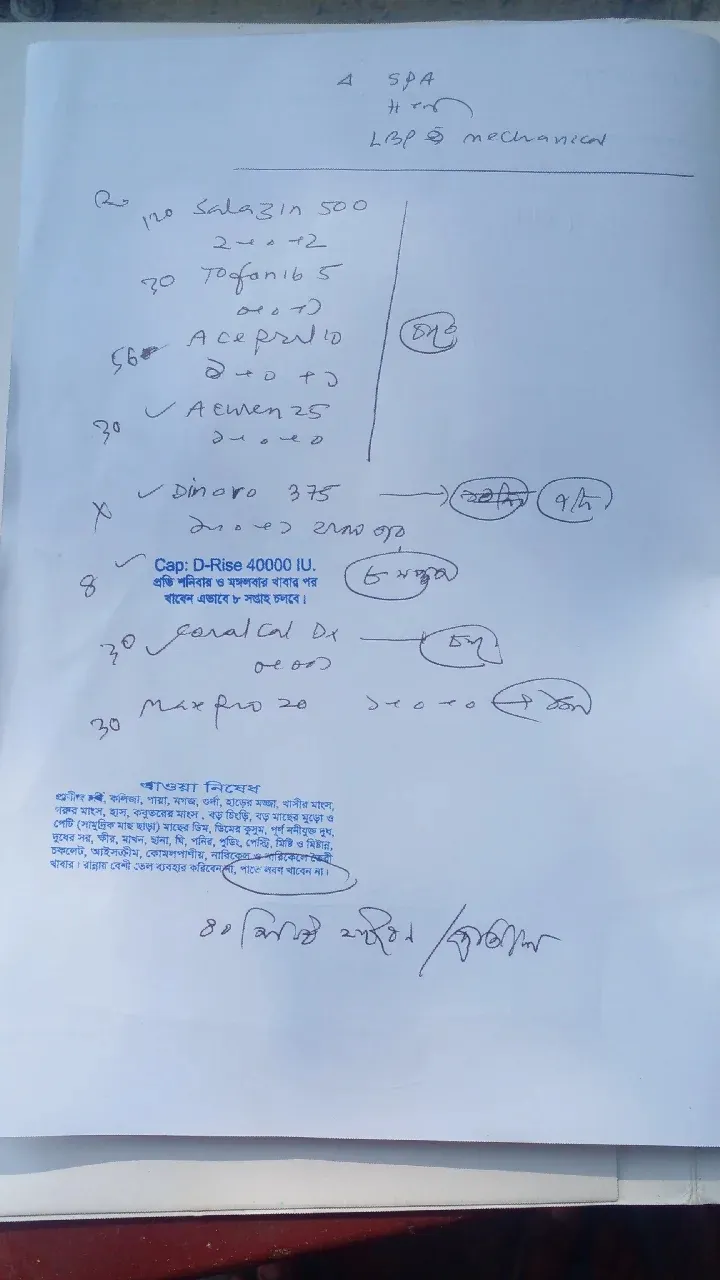 Δ SPA
LBP mechanical
Rx
120 Salazin 500
2+0+2
30 Tofanib 5
0+0+১
56 Acepril 10
১+0+১
30 ✓ Acuren 25
১+0+0
চলবে
X ✓ Dinovo 375 →
১+0+১
✓ Cap: D-Rise 40000 IU.
8 প্রতি শনিবার ও মঙ্গলবার খাবার পর
খাবেন এভাবে ৮ সপ্তাহ চলবে।
৮ সপ্তাহ
30 ✓ Coralcal Dx →
0+0+১
30 Maxpro 20 ১+0+0 →
খাওয়া নিষেধ
কলিজা, পায়া, মগজ, গুর্দা, হাড়ের মজ্জা, খাসীর মাংস,
গরুর মাংস, হাস, কবুতরের মাংস, বড় চিংড়ি, বড় মাছের মুড়ো ও
পেটি (সামুদ্রিক মাছ ছাড়া) মাছের ডিম, ডিমের কুসুম, পূর্ণ ননীযুক্ত দুধ,
দুধের সর, ক্ষীর, মাখন, ছানা, ঘি, পনির, পুডিং, পেস্ট্রি, মিষ্টি ও মিষ্টান্ন,
চকলেট, আইসক্রীম, কোমলপাণীয়, নারিকেল ও নারিকেলে তৈরী
খাবার। রান্নায় বেশী তেল ব্যবহার করিবেন না, পাতে লবণ খাবেন না।
৪০ মিনিট